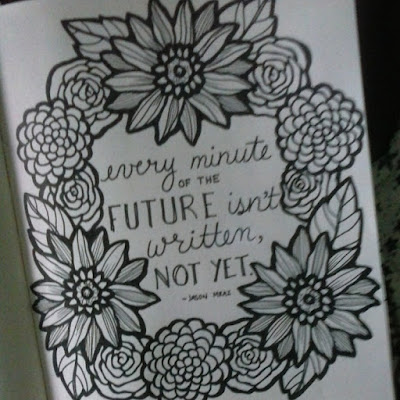 every minute
OF THE
FUTURE isn't
written,
NOT YET.
- JASON MRAZ